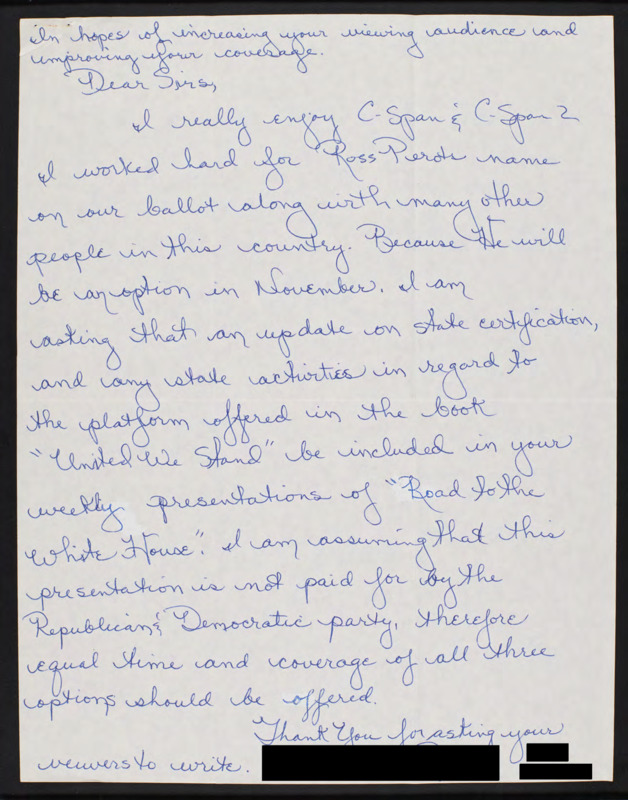 In hopes of increasing your viewing audience and
improving your coverage.
Dear Sirs,
I really enjoy C-Span & C-Span 2
I worked hard for Ross Perots name
on our ballot along with many other
people in this country. Because He will
be an option in November. I am
asting that an update on state certification,
and any state activities in regard to
the platform offered in the book
"United We Stand" be included in your
weekly presentations of "Road to the
White House". I am assuming that this
presentation is not paid for by the
Republican & Democratic party, therefore
equal time and coverage of all three
options should be offered.
Thank You for asting your
veiwers to write.